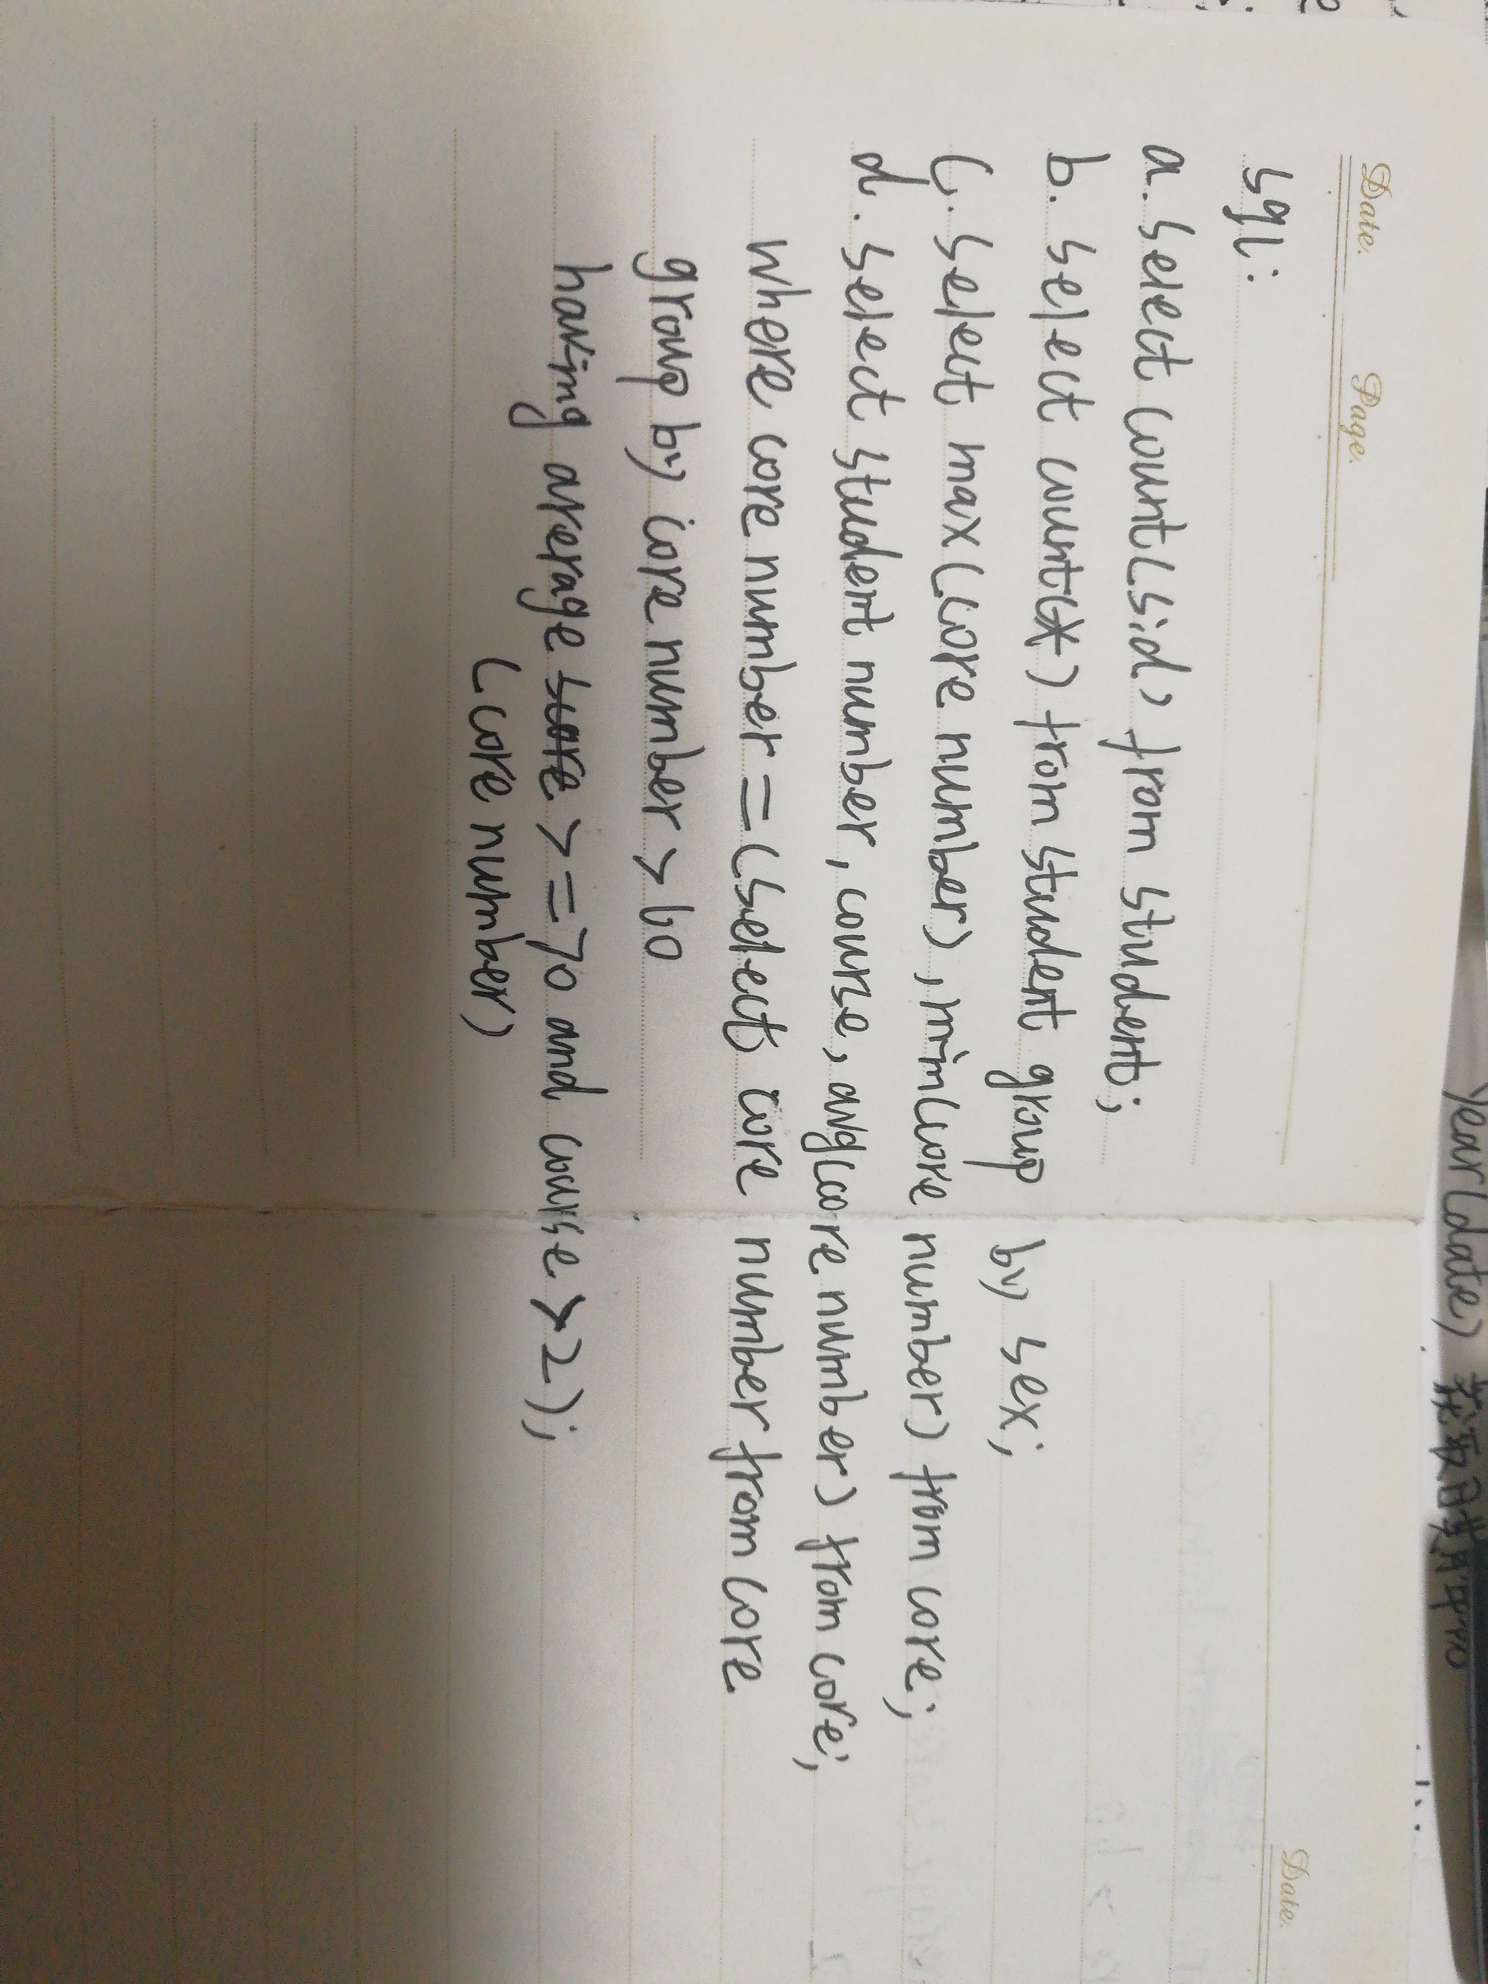 year(date) 获取日期中
Date. Page.
Date.
sql:
a. select count(sid) from student;
b. select count(*) from student group by sex;
c. select max(core number), min(core number) from core;
d. select student number, course, avg(core number) from core;
where core number = (select core number from core
group by core number > 60
having average score >= 70 and course > 2);
(core number)